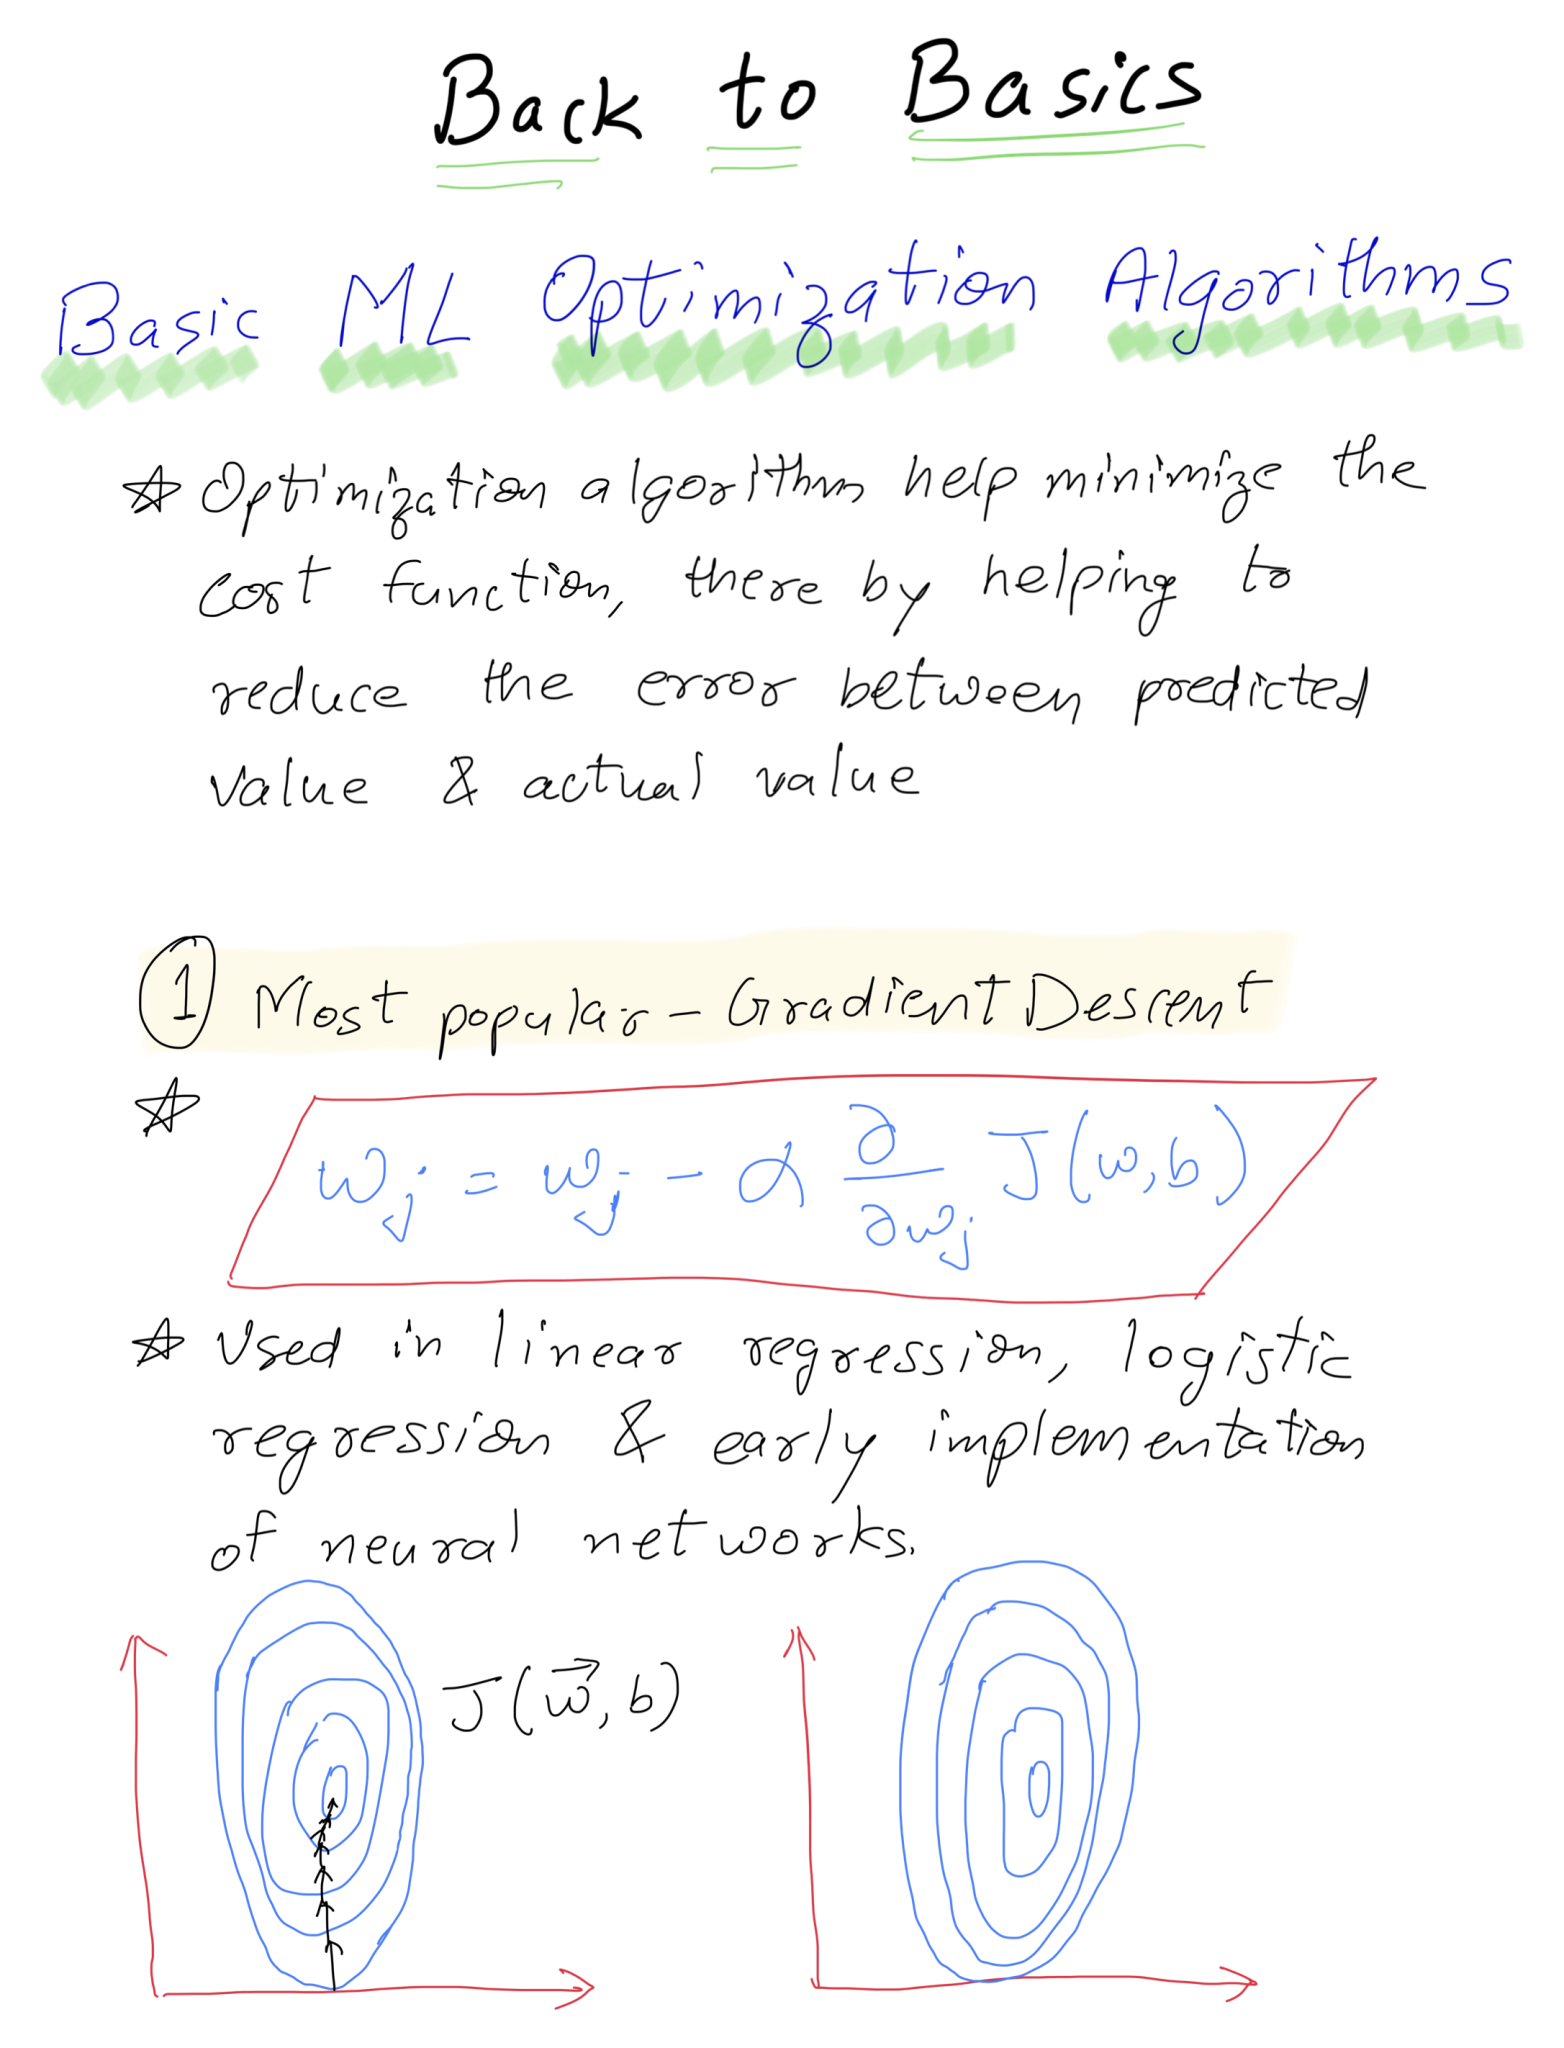 Back to Basics
Basic ML Optimization Algorithms
☆ Optimization algorithms help minimize the
cost function, there by helping to
reduce the error between predicted
value & actual value
① Most popular - Gradient Descent
☆ w_j = w_j - α ∂/∂w_j J(w,b)
☆ Used in linear regression, logistic
regression & early implementation
of neural networks.
J(w⃗, b)